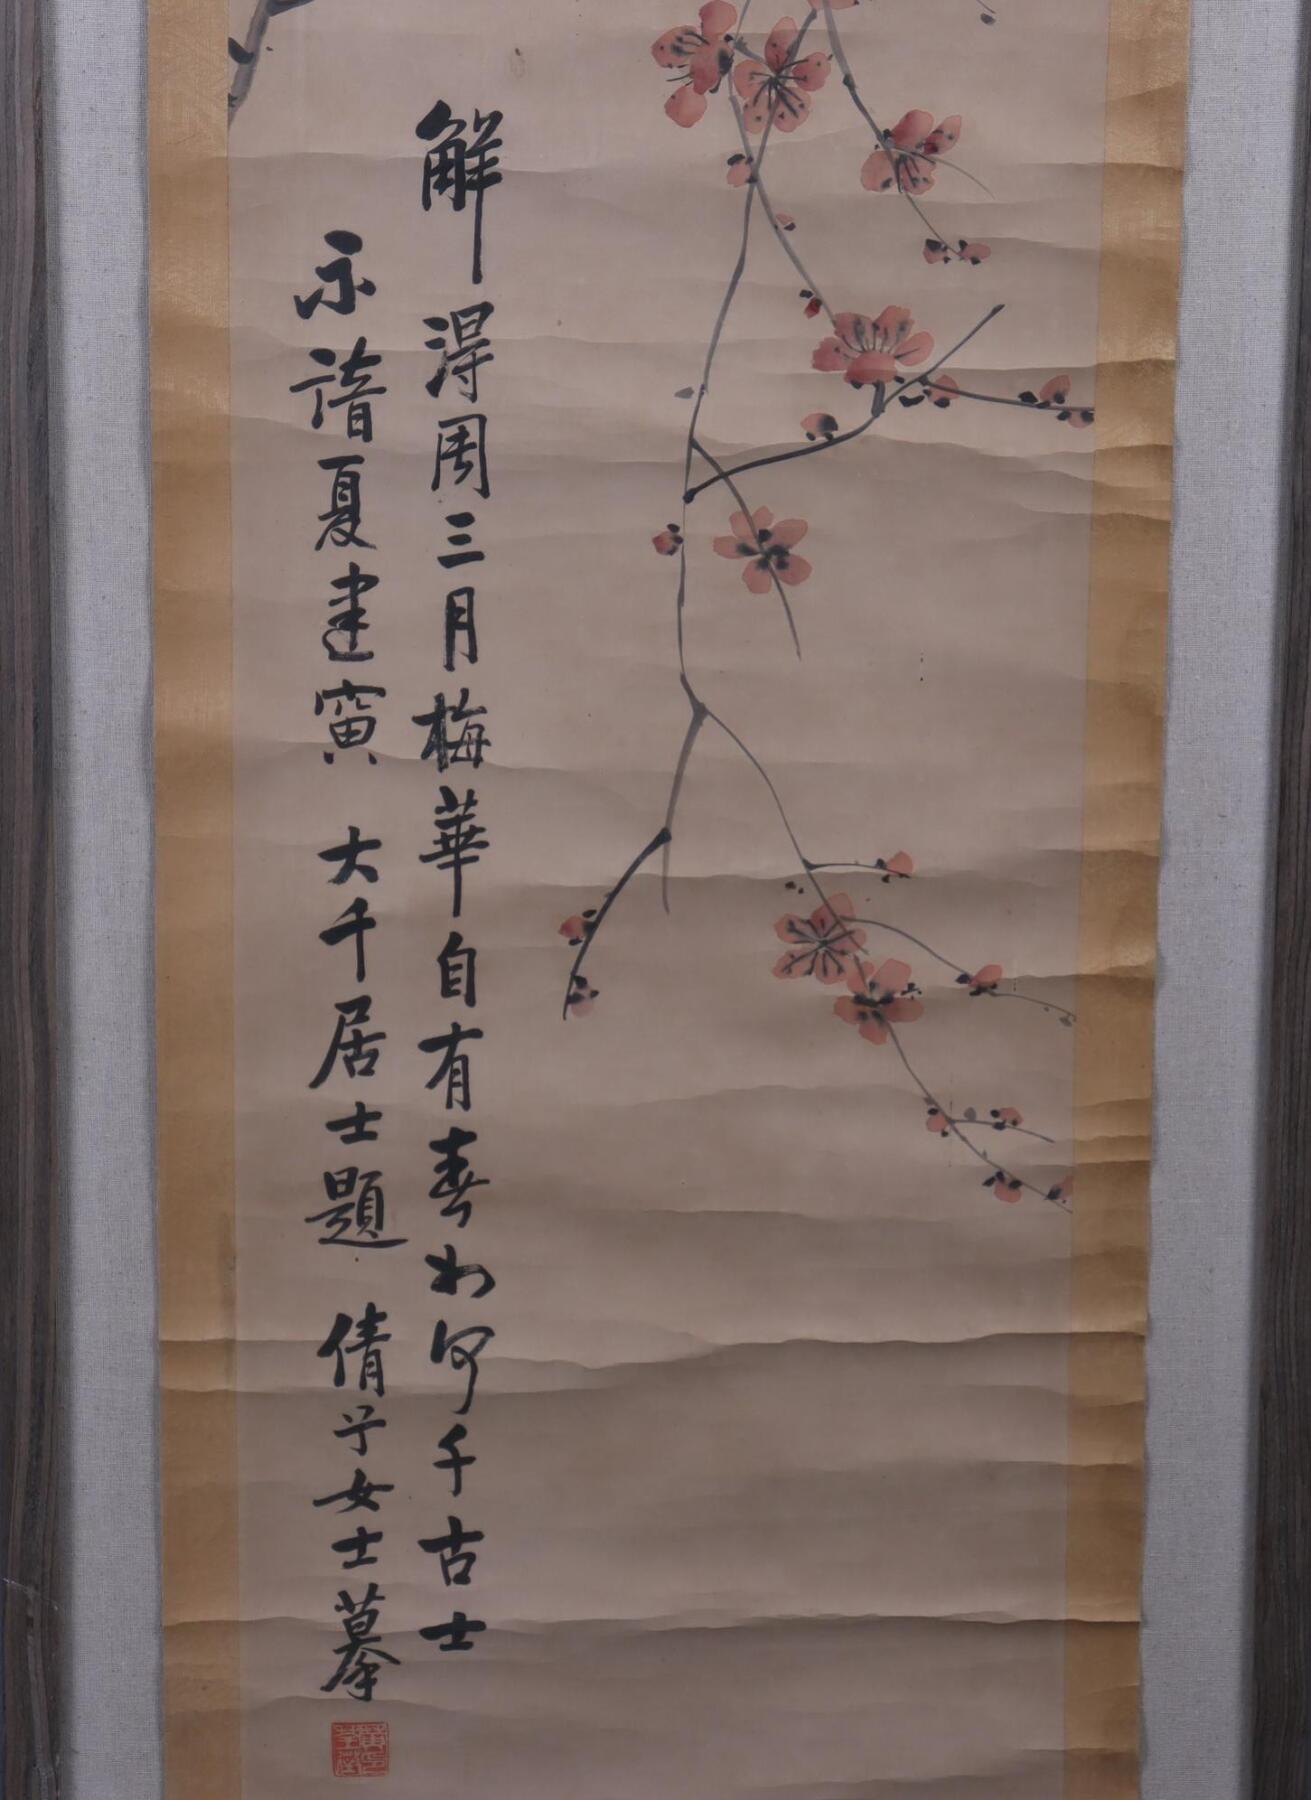 解得周三月梅華自有春如何千古士
不諳夏建寅 大千居士題 倩兮女士摹